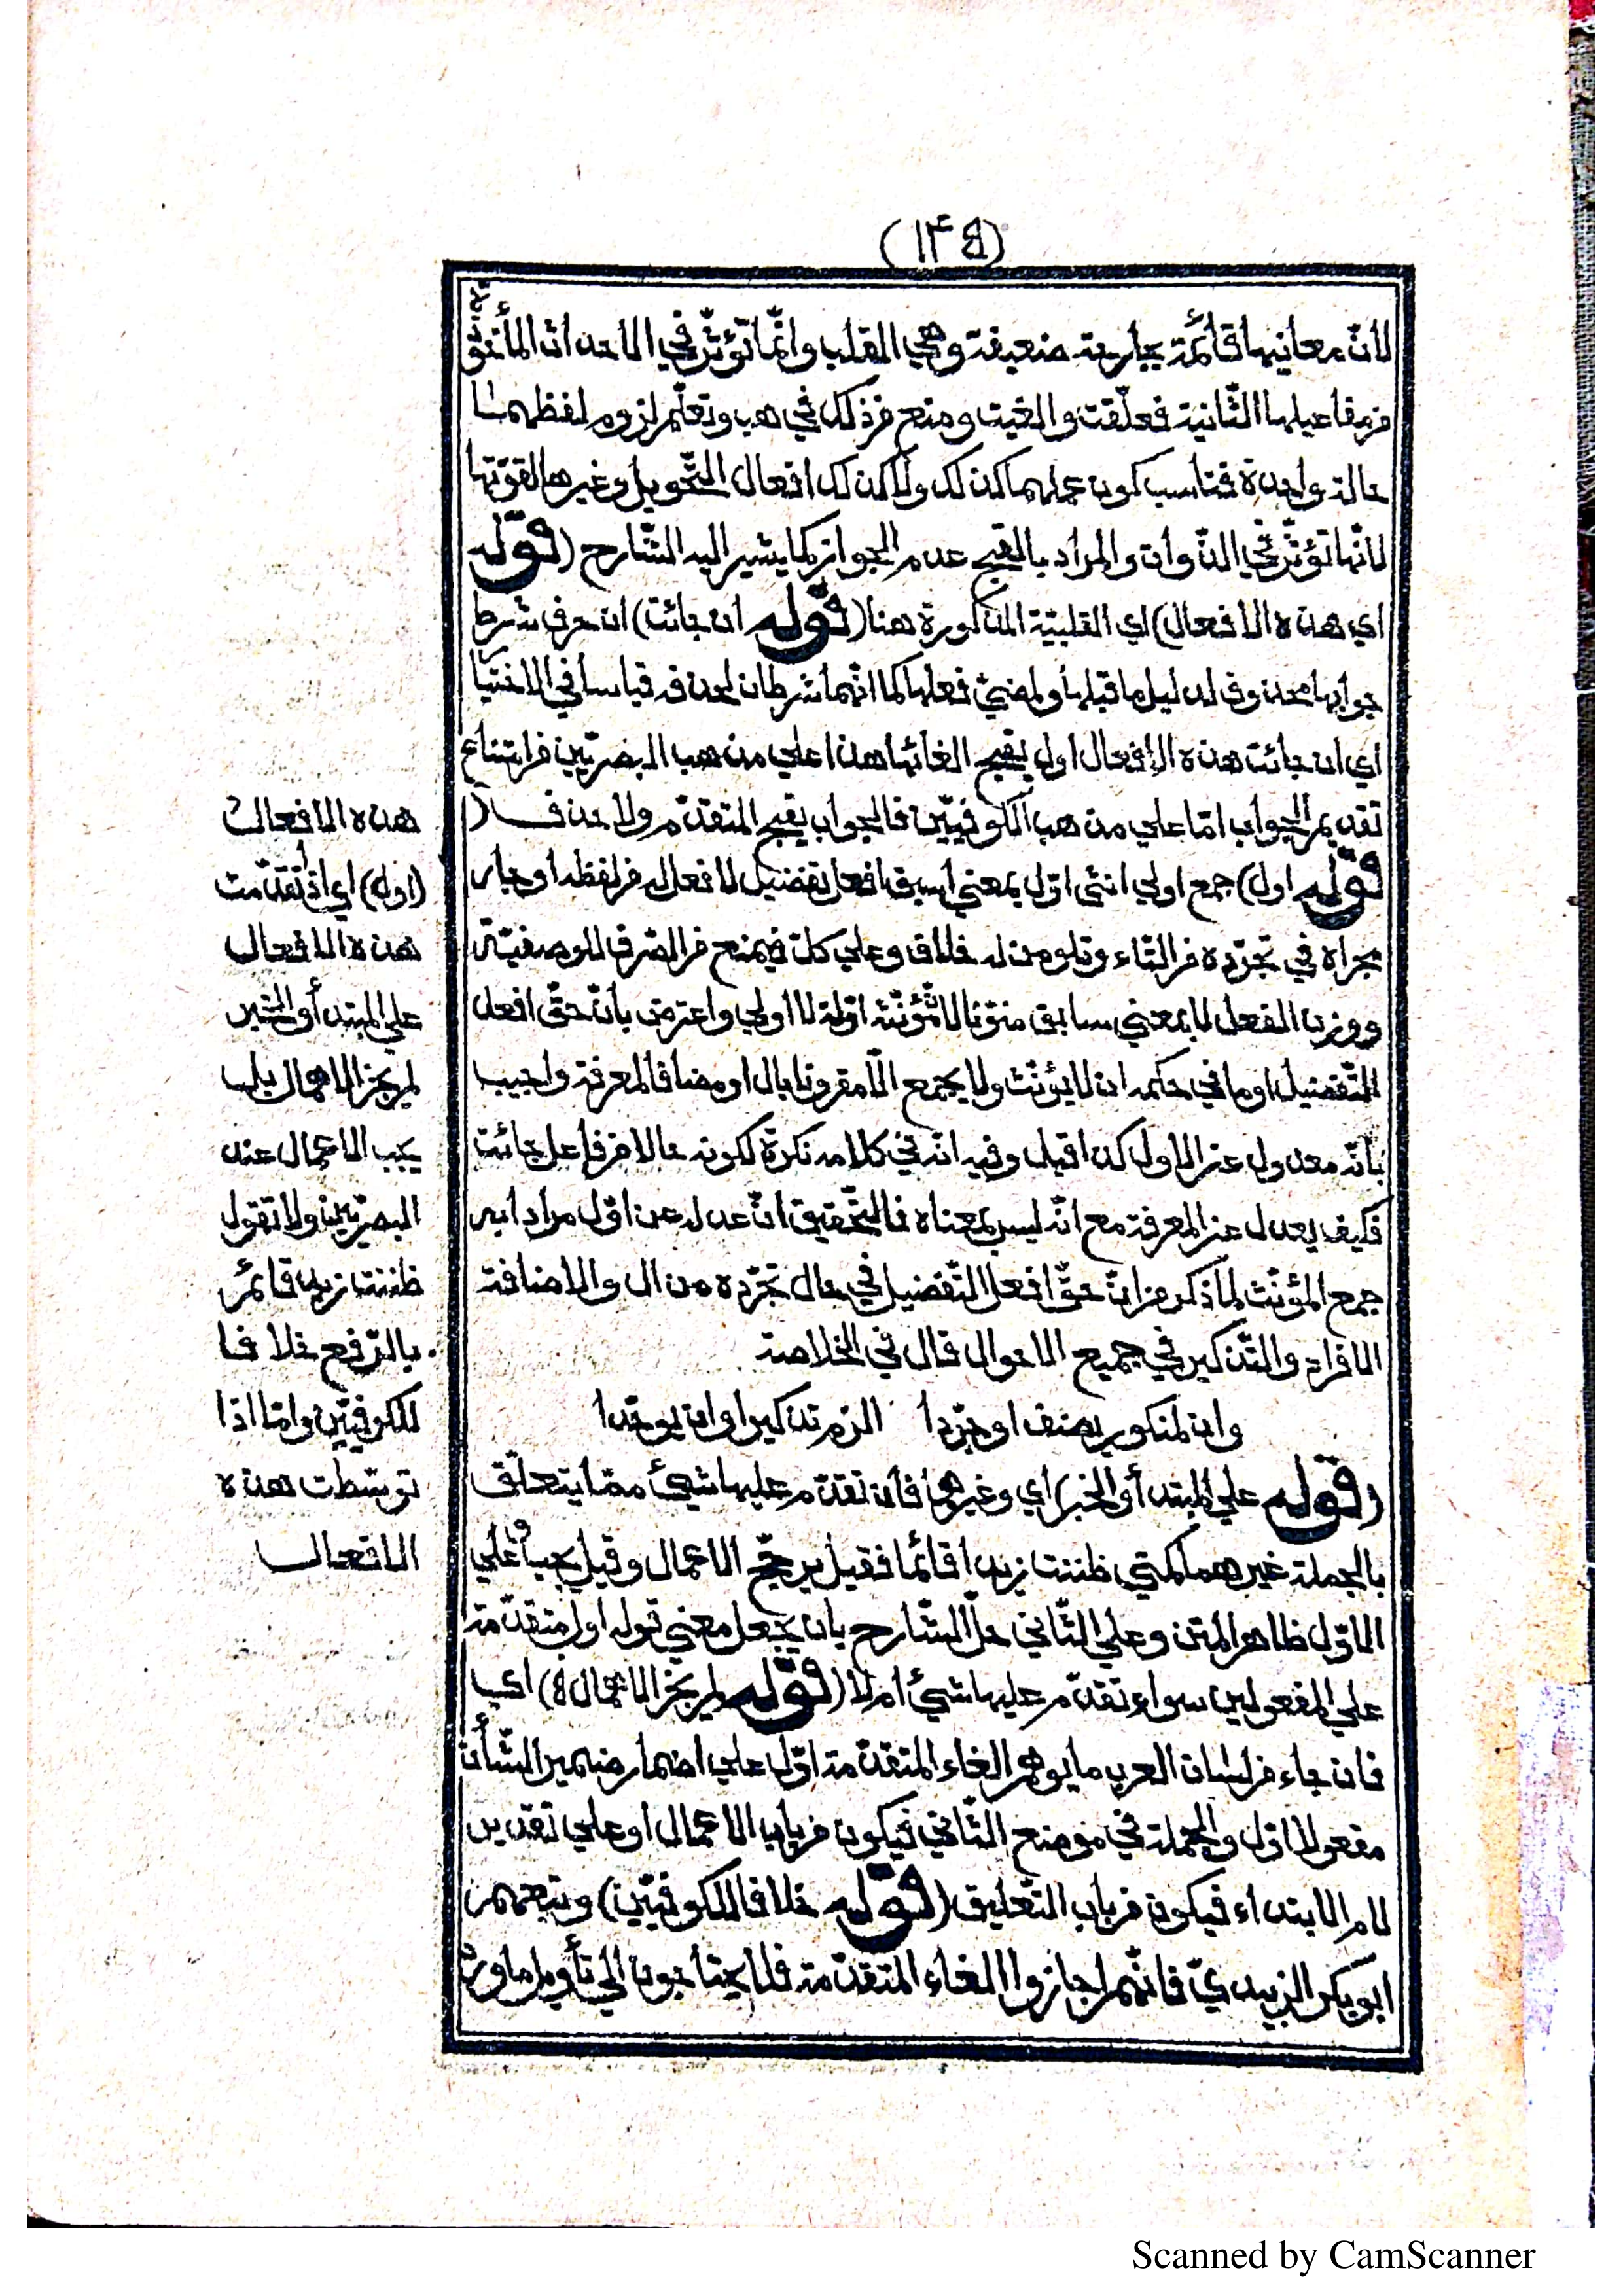 (١٣٤)
لانّ معانيها قائمة بجارحة ضعيفة وهي القلب وانّما تؤثّر في الاحداث المأخوذة
من مفاعيلها الثّانية فعلّقت والغيت ومنع من ذلك في هب وتعلّم لزوم لفظهما
حالة واحدة فناسب كون عملهما كذلك ولا كذلك افعال التّحويل وغيرها لقوّتها
لانّها تؤثّر في الذّوات والمراد بالقبح عدم الجواز كما يشير اليه الشّارح (قوله
اي هذه الافعال) اي القلبيّة المذكورة هنا (قوله ان جائت) ان حرف شرط
جوابها محذوف لدليل ما قبلها ولمضيّ فعلها كما انّهما شرطان لحذفه قياسا في الاختيار
اي ان جائت هذه الافعال اول يقبح الغائها هذا علي مذهب البصريّين من امتناع
تقديم الجواب امّا علي مذهب الكوفيّين فالجواب يقبح المتقدّم ولا حذف (
قوله اول) جمع اولي انثي اوّل بمعني اسبق افعل تفضيل لا فعل له من لفظه او جار
مجراه في تجرّده من التاء وتلو من له خلاف وعلي كلّ فيمنع من الصّرف للوصفيّة
ووزن الفعل لا بمعني سابق منوّنا لانّ مؤنّثه اوّلة لا اولي واعترض بانّ حقّ افعل
التّفضيل او ما في حكمه ان لا يؤنّث ولا يجمع الّا مقرونا بال او مضافا لمعرفة واجيب
بانّه معدول عن الاول كذا قيل وفيه انّه في كلامه نكرة لكونه حالا من فاعل جائت
فكيف يعدل عن المعرفة مع انّه ليس بمعناه فالتّحقيق انّ عدله عن اوّل مرادا به
جمع المؤنّث لما ذكر من انّ حقّ افعل التّفضيل في حال تجرّده من ال والاضافة
الافراد والتّذكير في جميع الاحوال قال في الخلاصة
وان لمنكور يضف او جرّدا الزم تذكيرا وان يوحّدا
(قوله علي المبتدأ والخبر) اي وغيرهما فان تقدّم عليها شيئ ممّا يتعلّق
بالجملة غيرهما كمتي ظننت زيدا قائما فقيل يرجّح الاعمال وقيل يجب وعلي
الاوّل ظاهر المتن وعلي الثّاني حلّ الشّارح بان يجعل معني قوله اول متقدّمة
علي المفعولين سواء تقدّم عليها شيئ ام لا (قوله لم يجز الاهمال) اي
فان جاء من لسان العرب ما يوهم الغاء المتقدّمة اوّل علي اضمار ضمير الشّأن
مفعولا اوّل والجملة في موضع الثّاني فيكون من باب الاعمال او علي تقدير
لام الابتداء فيكون من باب التّعليق (قوله خلافا للكوفيّين) وتبعهم
ابو بكر الزبيديّ فانّهم اجازوا الغاء المتقدّمة فلا يحتاجون الي تأويل ما ورد
هذه الافعال
(اول) اي ان تقدّمت
هذه الافعال
علي المبتدأ والخبر
لم يجز الاهمال بل
يجب الاعمال عند
البصريّين ولا تقول
ظننت زيد قائم
بالرّفع خلافا
للكوفيّين وامّا اذا
توسّطت هذه
الافعال
Scanned by CamScanner